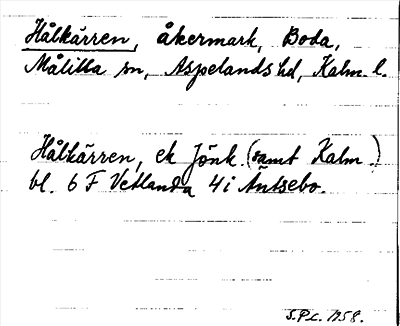 Hålkärren, åkermark, Boda,
Målilla sn, Aspelands hd, Kalm. l.
Hålkärren, ek Jönk. (samt Kalm.)
bl. 6 F Vetlanda 4 i Äntsebo.
S.P.L. 1958.